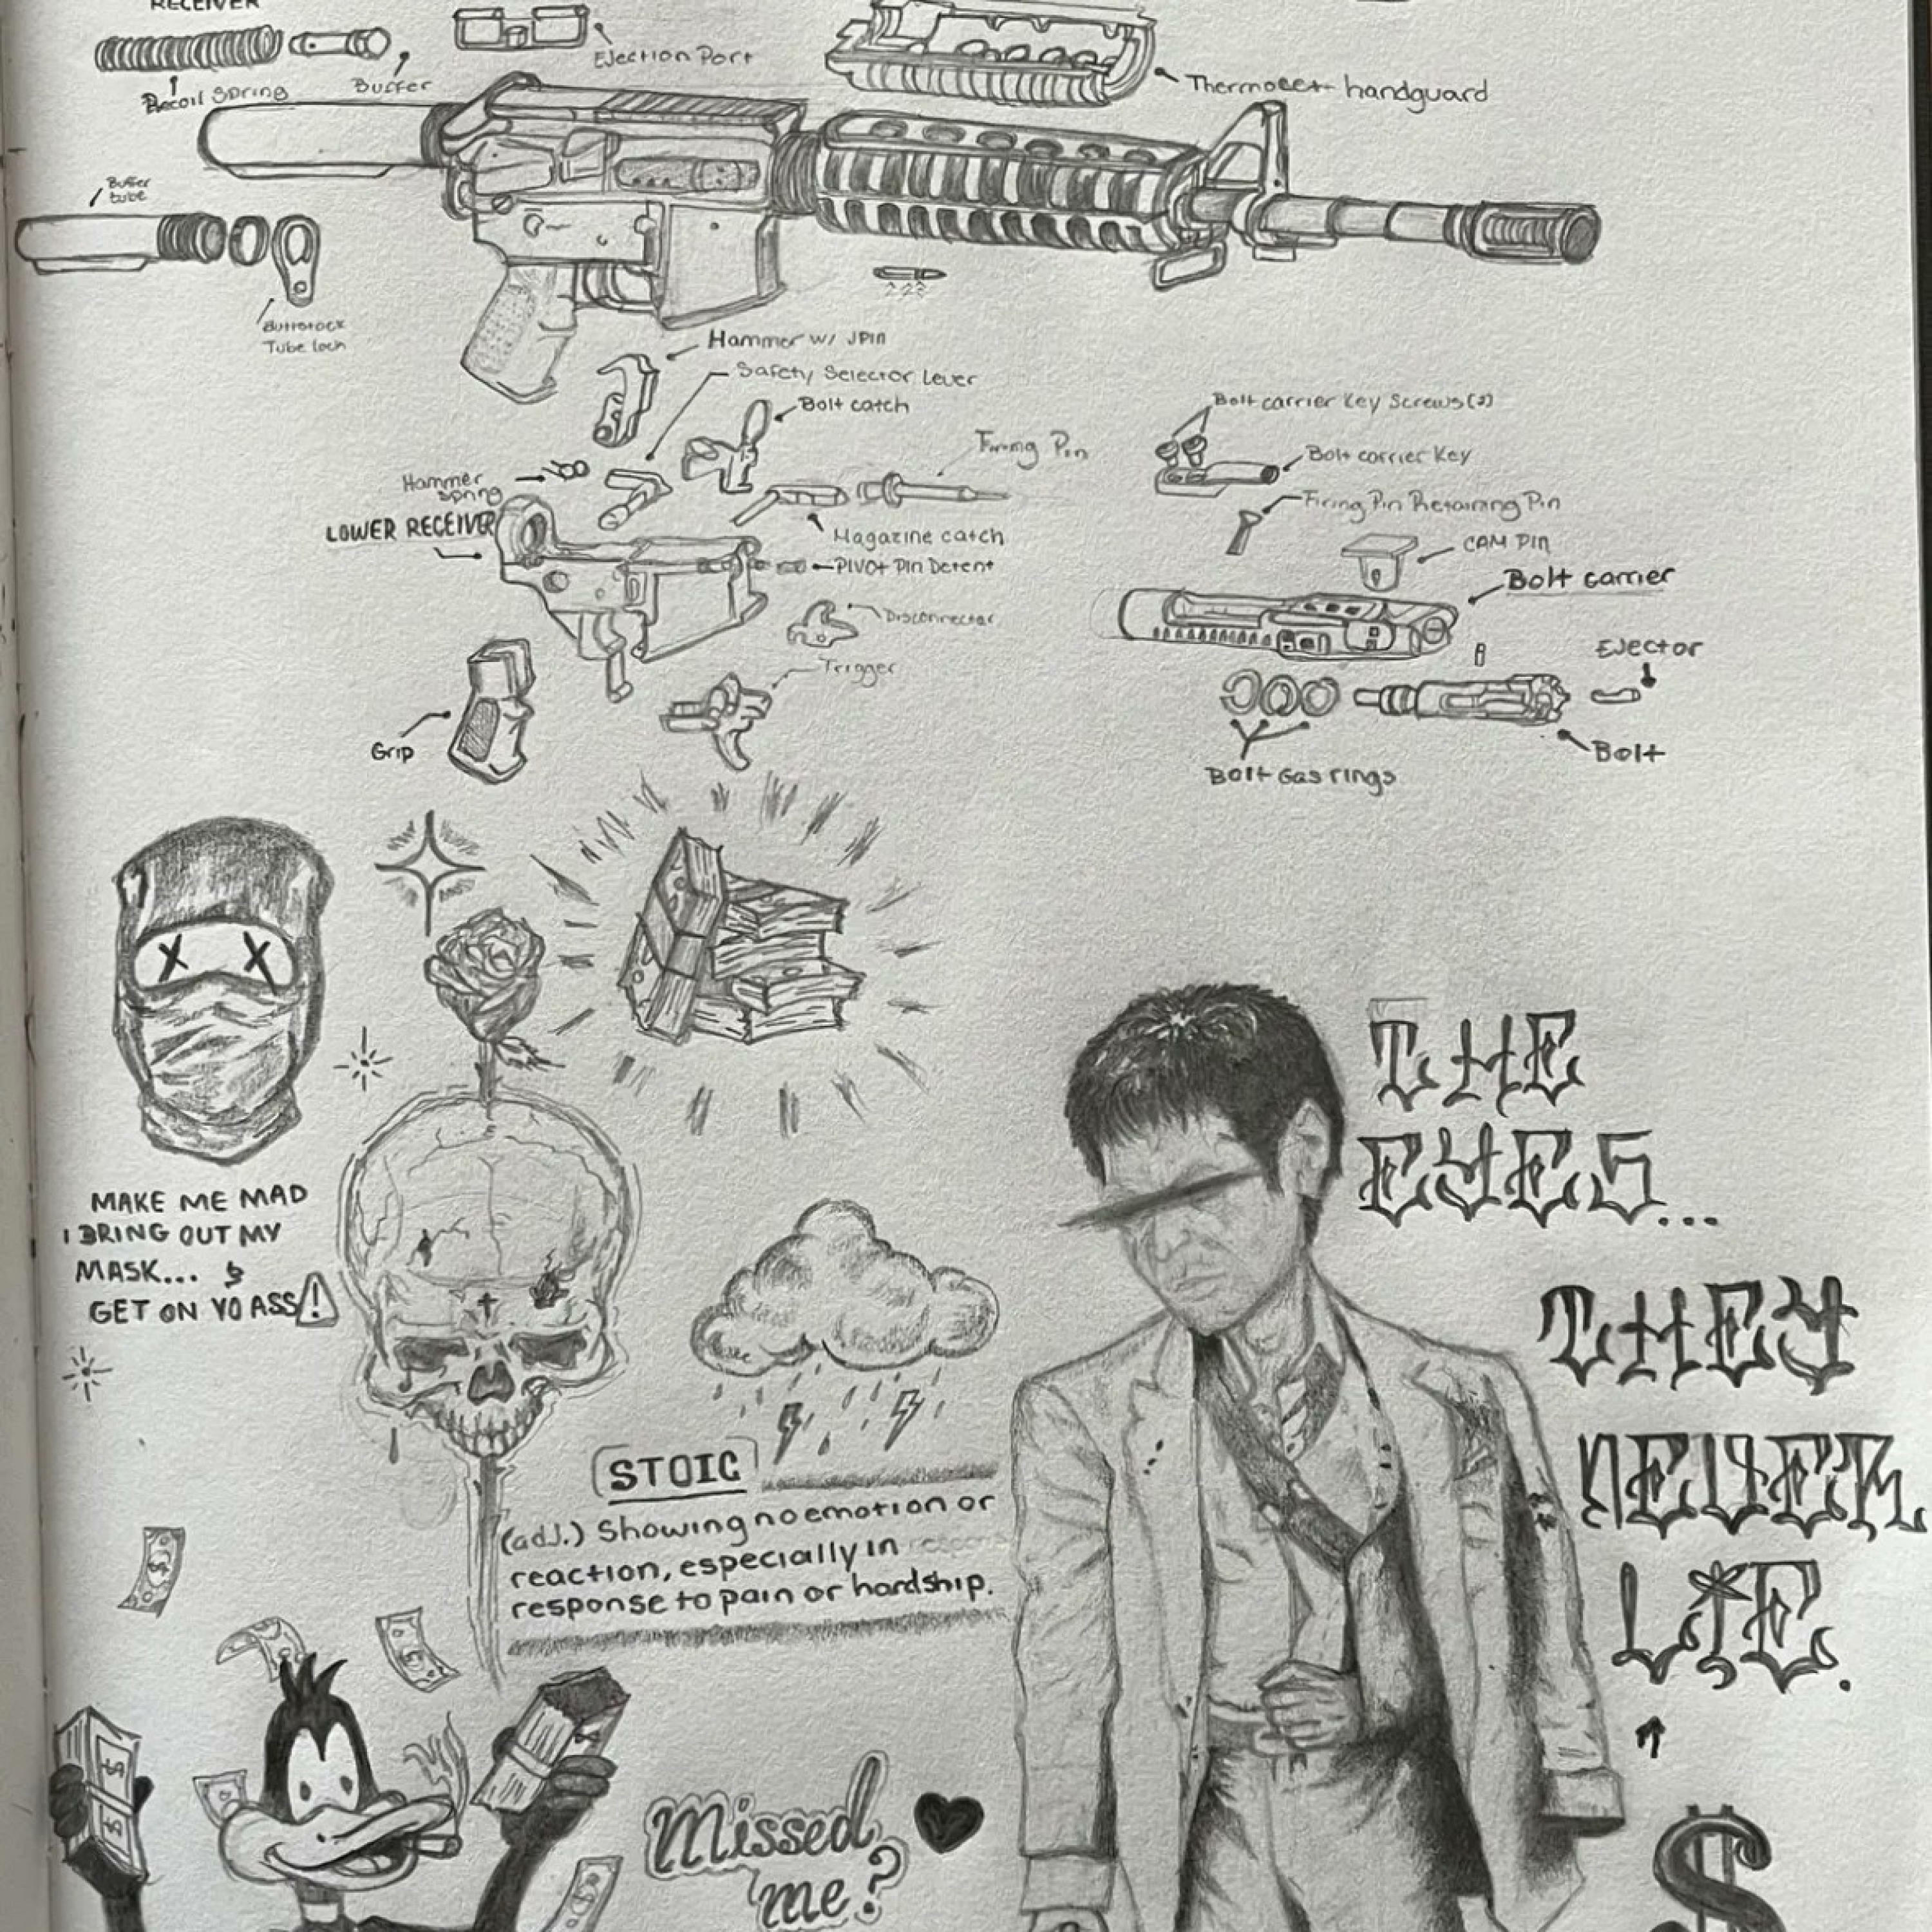 RECEIVER
Ejection Port
Recoil Spring
Buffer
Thermoset handguard
Buffer
tube
Buttstock
Tube lock
.223
Hammer w/ JPin
Safety Selector Lever
Bolt catch
Firing Pin
Hammer
Spring
LOWER RECEIVER
Magazine catch
PIVOT Pin Detent
Disconnector
Trigger
Grip
Bolt carrier Key Screws(2)
Bolt carrier Key
Firing Pin Retaining Pin
CAM PIN
Bolt carrier
Ejector
Bolt
Bolt Gas rings
MAKE ME MAD
I BRING OUT MY
MASK... &
GET ON YO ASS!
THE
EYES...
THEY
NEVER
LIE.
STOIC
(adj.) Showing no emotion or
reaction, especially in
response to pain or hardship.
Missed
me?
$